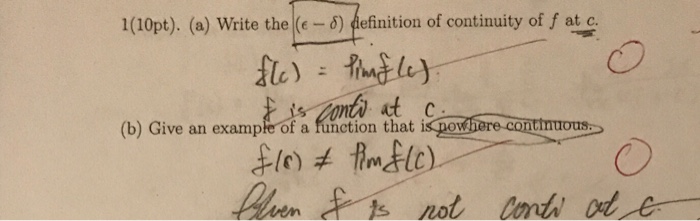 1(10pt). (a) Write the (ϵ − δ) definition of continuity of f at c.
f(c) = lim f(c)
f is conti at c.
(b) Give an example of a function that is nowhere continuous.
f(c) ≠ lim f(c)
f is not conti at c.